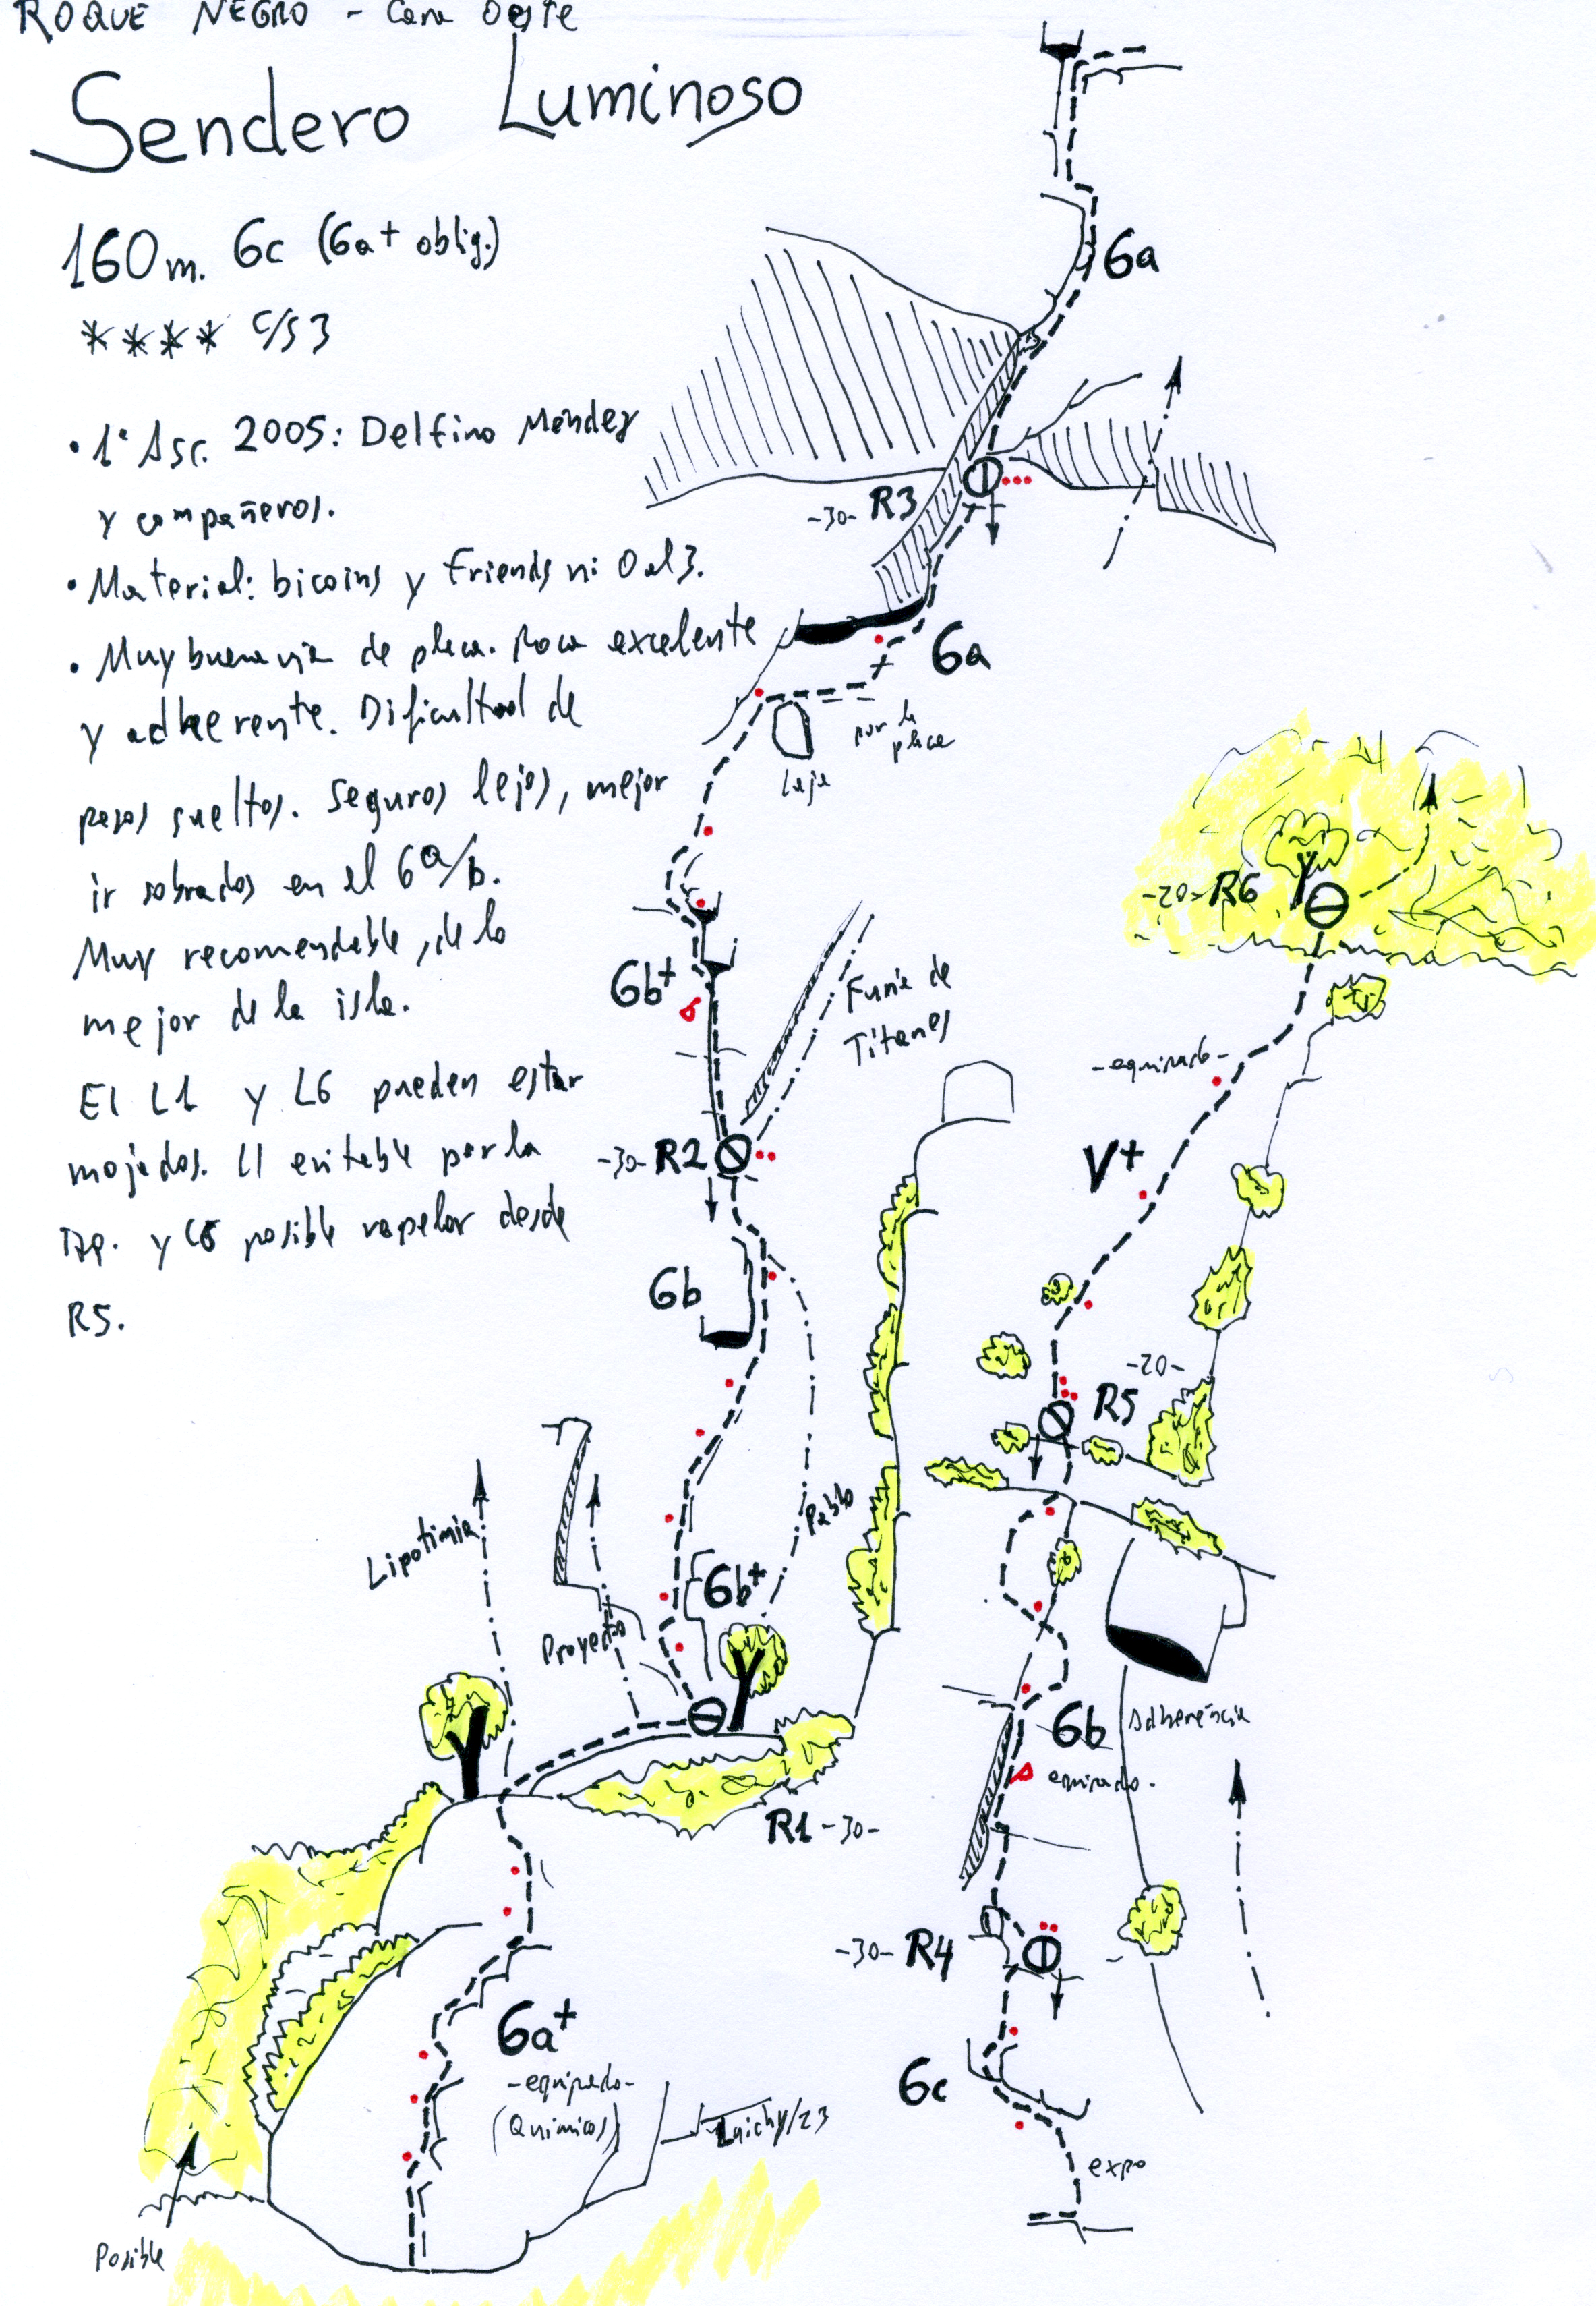 ROQUE NEGRO - Cara Oeste
Sendero Luminoso
160m. 6c (6a+ oblig.)
**** c/s 3
• 1ª Asc. 2005: Delfino Méndez
y compañeros.
• Material: bicoins y friends nº 0 al 3.
• Muy buena vía de placa. Roca excelente
y adherente. Dificultad de
pasos sueltos. Seguros lejos, mejor
ir sobrados en el 6a/b.
Muy recomendable, de lo
mejor de la isla.
El L1 y L6 pueden estar
mojados. L1 evitable por la
Izq. y L6 posible rapelar desde
R5.
6a
-30- R3
6a
por la
placa
Laja
6b+
Furia de
Titanes
-30- R2
6b
Pablo
Lipotimia
Proyecto
6b+
R1 -30-
6a+
-equipado-
(Químicos)
Luichy/23
Posible
-20- R6
-equipado-
V+
-20-
R5
6b
Adherencia
equipado.
-30- R4
6c
expo